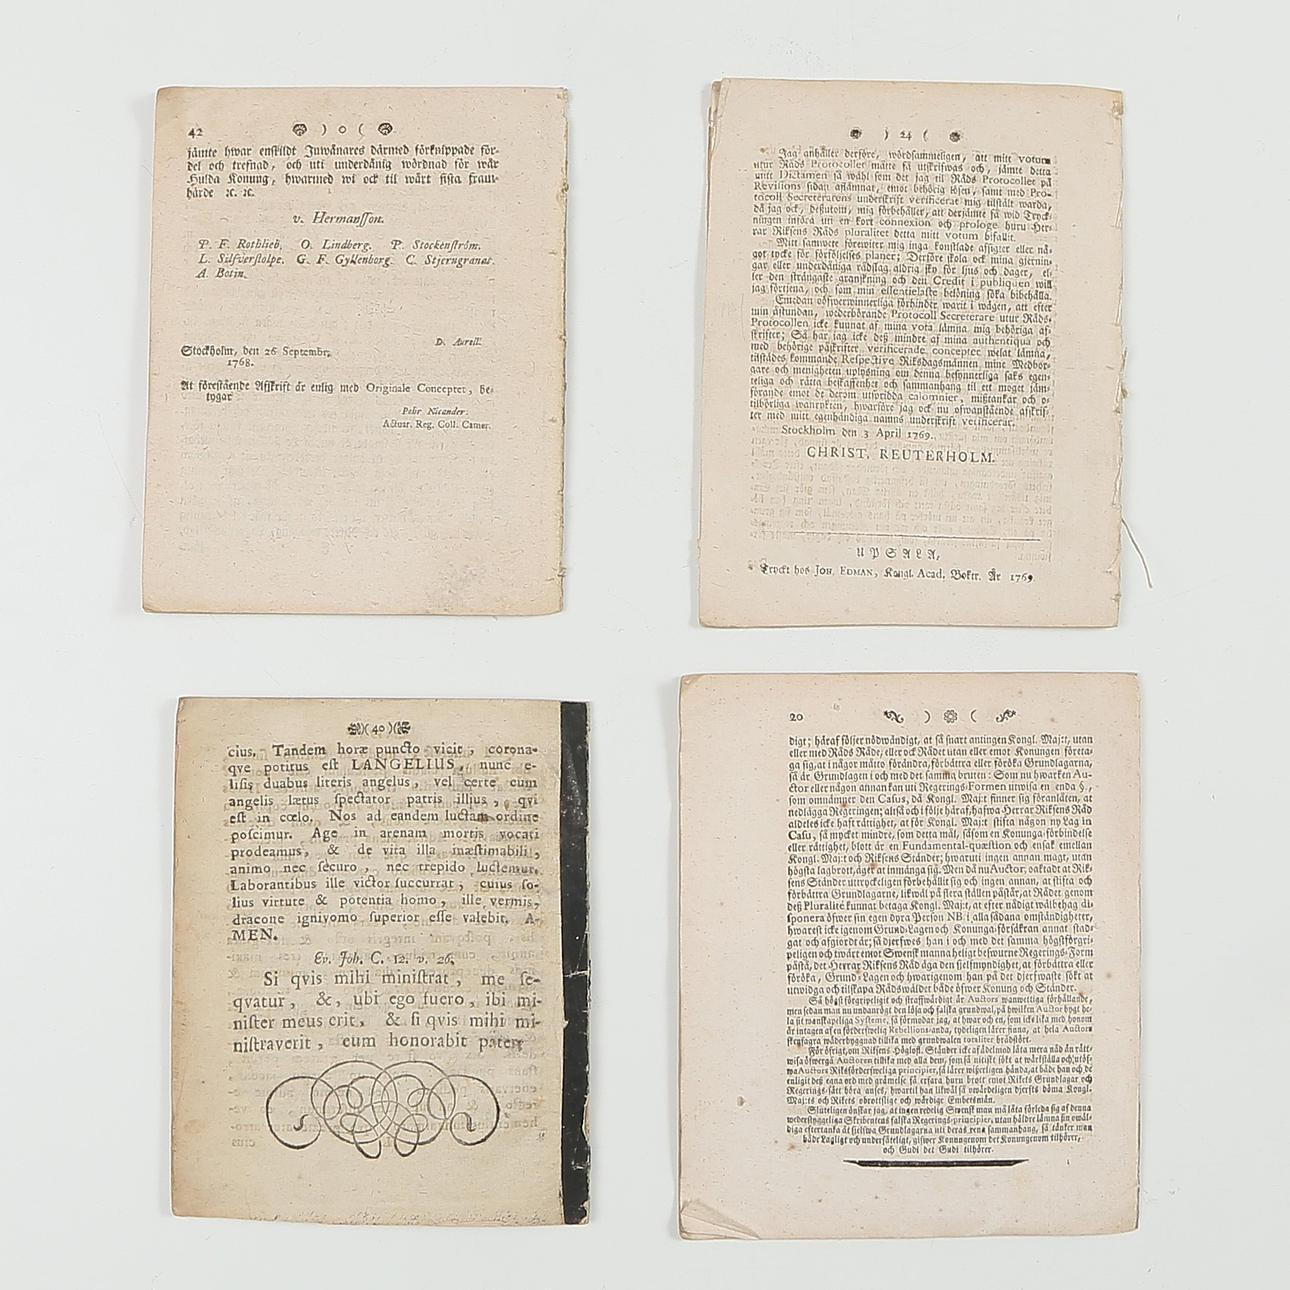 42 ) o (
jämte hwar enskildt Inwånares därmed förknippade för-
del och trefnad, och uti underdånig wördnad för wår
Hulda Konung, hwarmed wi ock til wårt sista fram-
härde ꝛc. ꝛc.
v. Hermansson.
P. F. Rothlieb, O. Lindberg. P. Stockenström.
L. Silfverstolpe. G. F. Gyllenborg. C. Stjerngranat.
A. Botin.
D. Aurell.
Stockholm, den 26 Septembr,
1768.
At förestående Afskrift är enlig med Originale Conceptet, be-
tygar
Pehr Nicander.
Actuar. Reg. Coll. Camer.
) 24 (
Jag anhåller derföre, wördsammeligen, att mitt votum
utur Råds Protocollet måtte få utskrifwas och, jämte detta
mitt Dictamen så wähl som det jag til Råds Protocollet på
Revisions sidan aflämnat, emot behörig lösen, samt med Pro-
tocoll Secreterarens underskrift verificerat mig tilstält warda,
då jag ock, deßutom, mig förbehåller, att derjämte få wid Tryck-
ningen införa uti en kort connexion och prologe huru Her-
rar Riksens Råds pluralitet detta mitt votum bifallit.
Mitt samwete förewiter mig inga konstlade afsigter eller nå-
got tycke för förföljelses planer; Derföre skola ock mina gjernin-
gar eller underdåniga rådslag aldrig sky för ljus och dager, el-
ler den strängaste granskning och den Credit i publiquen will
jag förtjena, och som min essentielaste belöning söka bibehålla.
Emedan oöfwerwinnerliga förhinder warit i wägen, att efter
min åstundan, wederbörande Protocoll Secreterare utur Råds-
Protocollen icke kunnat af mina vota lämna mig behöriga af-
skrifter; Så har jag icke deß mindre af mina authentiqua och
med behörige påskrifter verificerade concepter welat lämna,
tilstådes kommande Respective Riksdagsmännen mine Medbor-
gare och menigheten uplysning om denna besynnerliga saks egen-
teliga och rätta beskaffenhet och sammanhang til ett moget jäm-
förande emot de derom utspridda calomnier, mißtankar och o-
tilbörliga wanrykten, hwarföre jag ock nu ofwanstående afskrif-
ter med mitt egenhändiga namns underskrift verificerar.
Stockholm den 3 April 1769.
CHRIST. REUTERHOLM.
UPSALA,
Tryckt hos JOH. EDMAN, Kongl. Acad. Boktr. År 1769.
)( 40 )(
cius. Tandem horæ puncto vicit, corona-
qve potitus est LANGELIUS, nunc e-
lisis duabus literis angelus, vel certe cum
angelis lætus spectator patris illius, qvi
est in cœlo. Nos ad eandem luctam ordine
poscimur. Age in arenam mortis vocati
prodeamus, & de vita illa inæstimabili,
animo nec securo, nec trepido luctemur.
Laborantibus ille victor succurrat, cuius so-
lius virtute & potentia homo, ille vermis,
dracone ignivomo superior esse valebit. A-
MEN.
Ev. Joh. C. 12. v. 26.
Si qvis mihi ministrat, me se-
qvatur, &, ubi ego fuero, ibi mi-
nister meus erit, & si qvis mihi mi-
nistraverit, eum honorabit pater
20 ) (
digt; häraf följer nödwändigt, at så snart antingen Kongl. Maj:t, utan
eller med Råds Råde, eller ock Rådet utan eller emot Konungen företa-
ga sig, at i något måtto förändra, förbättra eller föröka Grundlagarna,
så är Grundlagen i och med det samma bruten: Som nu hwarken Au-
ctor eller någon annan kan uti Regerings-Formen utwisa en enda §.,
som omnämner den Casus, då Kongl. Maj:t finner sig föranlåten, at
nedlägga Regeringen; altså och i följe häraf, hafwa Herrar Riksens Råd
aldeles icke haft rättighet, at för Kongl. Maj:t stifta någon ny Lag in
Casu, så mycket mindre, som detta mål, såsom en Konunga-förbindelse
eller rättighet, blott är en Fundamental-quæstion och ensak emellan
Kongl. Maj:t och Riksens Ständer; hwaruti ingen annan magt, utan
högsta lagbrott, äger at inmänga sig. Men då nu Auctor, oaktadt at Rik-
sens Ständer uttryckeligen förbehållit sig och ingen annan, at stifta och
förbättra Grundlagarne, likwäl på flera ställen påstår, at Rådet genom
deß Pluralité kunnat betaga Kongl. Maj:t, at efter nådigt wälbehag di-
sponera öfwer sin egen dyra Person NB i alla sådana omständigheter,
hwarest icke igenom Grund-Lagen och Konunga-försäkran annat stad-
gat och afgiordt är; så djerfwes han i och med det samma högstförgri-
peligen och twärt emot Swensk manna heligt beswurne Regerings-Form
påstå, det Herrar Riksens Råd äga den sjelfmyndighet, at förbättra eller
föröka, Grund-Lagen och hwarigenom han på det djerfwaste sökt at
utwidga och tilskapa Rådswäldet både öfwer Konung och Ständer.
Så högst förgripeligit och straffwärdigt är Auctors wanwettiga förhållande,
men sedan man nu undanrögt den lösa och falska grundwal, på hwilken Auctor bygt he-
la sit wanskapeliga Systeme, så förmodar jag, at hwar och en, som icke lika med honom
är intagen af en förderfwelig Rebellions-anda, tydeligen lärer finna, at hela Auctors
stegfagra wäderbyggnad tillika med grundwalen totaliter brådstört.
För öfrigt, om Riksens Höglofl. Ständer icke af ädelmod låta mera nåd än rätt-
wisa öfwergå Auctoren tillika med alla dem, som så nitiskt sökt at wärkställa och utöf-
wa Auctors Riksförderfweliga principier, så lärer wißerligen hända, at både han och de
enligit deß eāna ord med grämelse så erfara huru brott emot Rikets Grundlagar och
Regerings-sätt böra anses, hwartil han likwäl så owärdeligen djerfts döma Kongl.
Maj:ts och Rikets obrottslige och wärdige Embetsmän.
Sluteligen önskar jag, at ingen redelig Swensk man må låta förleda sig af denna
wederstyggeliga Skribentens falska Regerings-principier, utan hälldre lämna sin owäl-
diga eftertanka åt sjelfwa Grundlagarna uti deras rena sammanhang, så tänker man
både Lagligt och undersåteligt, gifwer Konungenom det Konungenom tilhörer,
och Gudi det Gudi tilhörer.